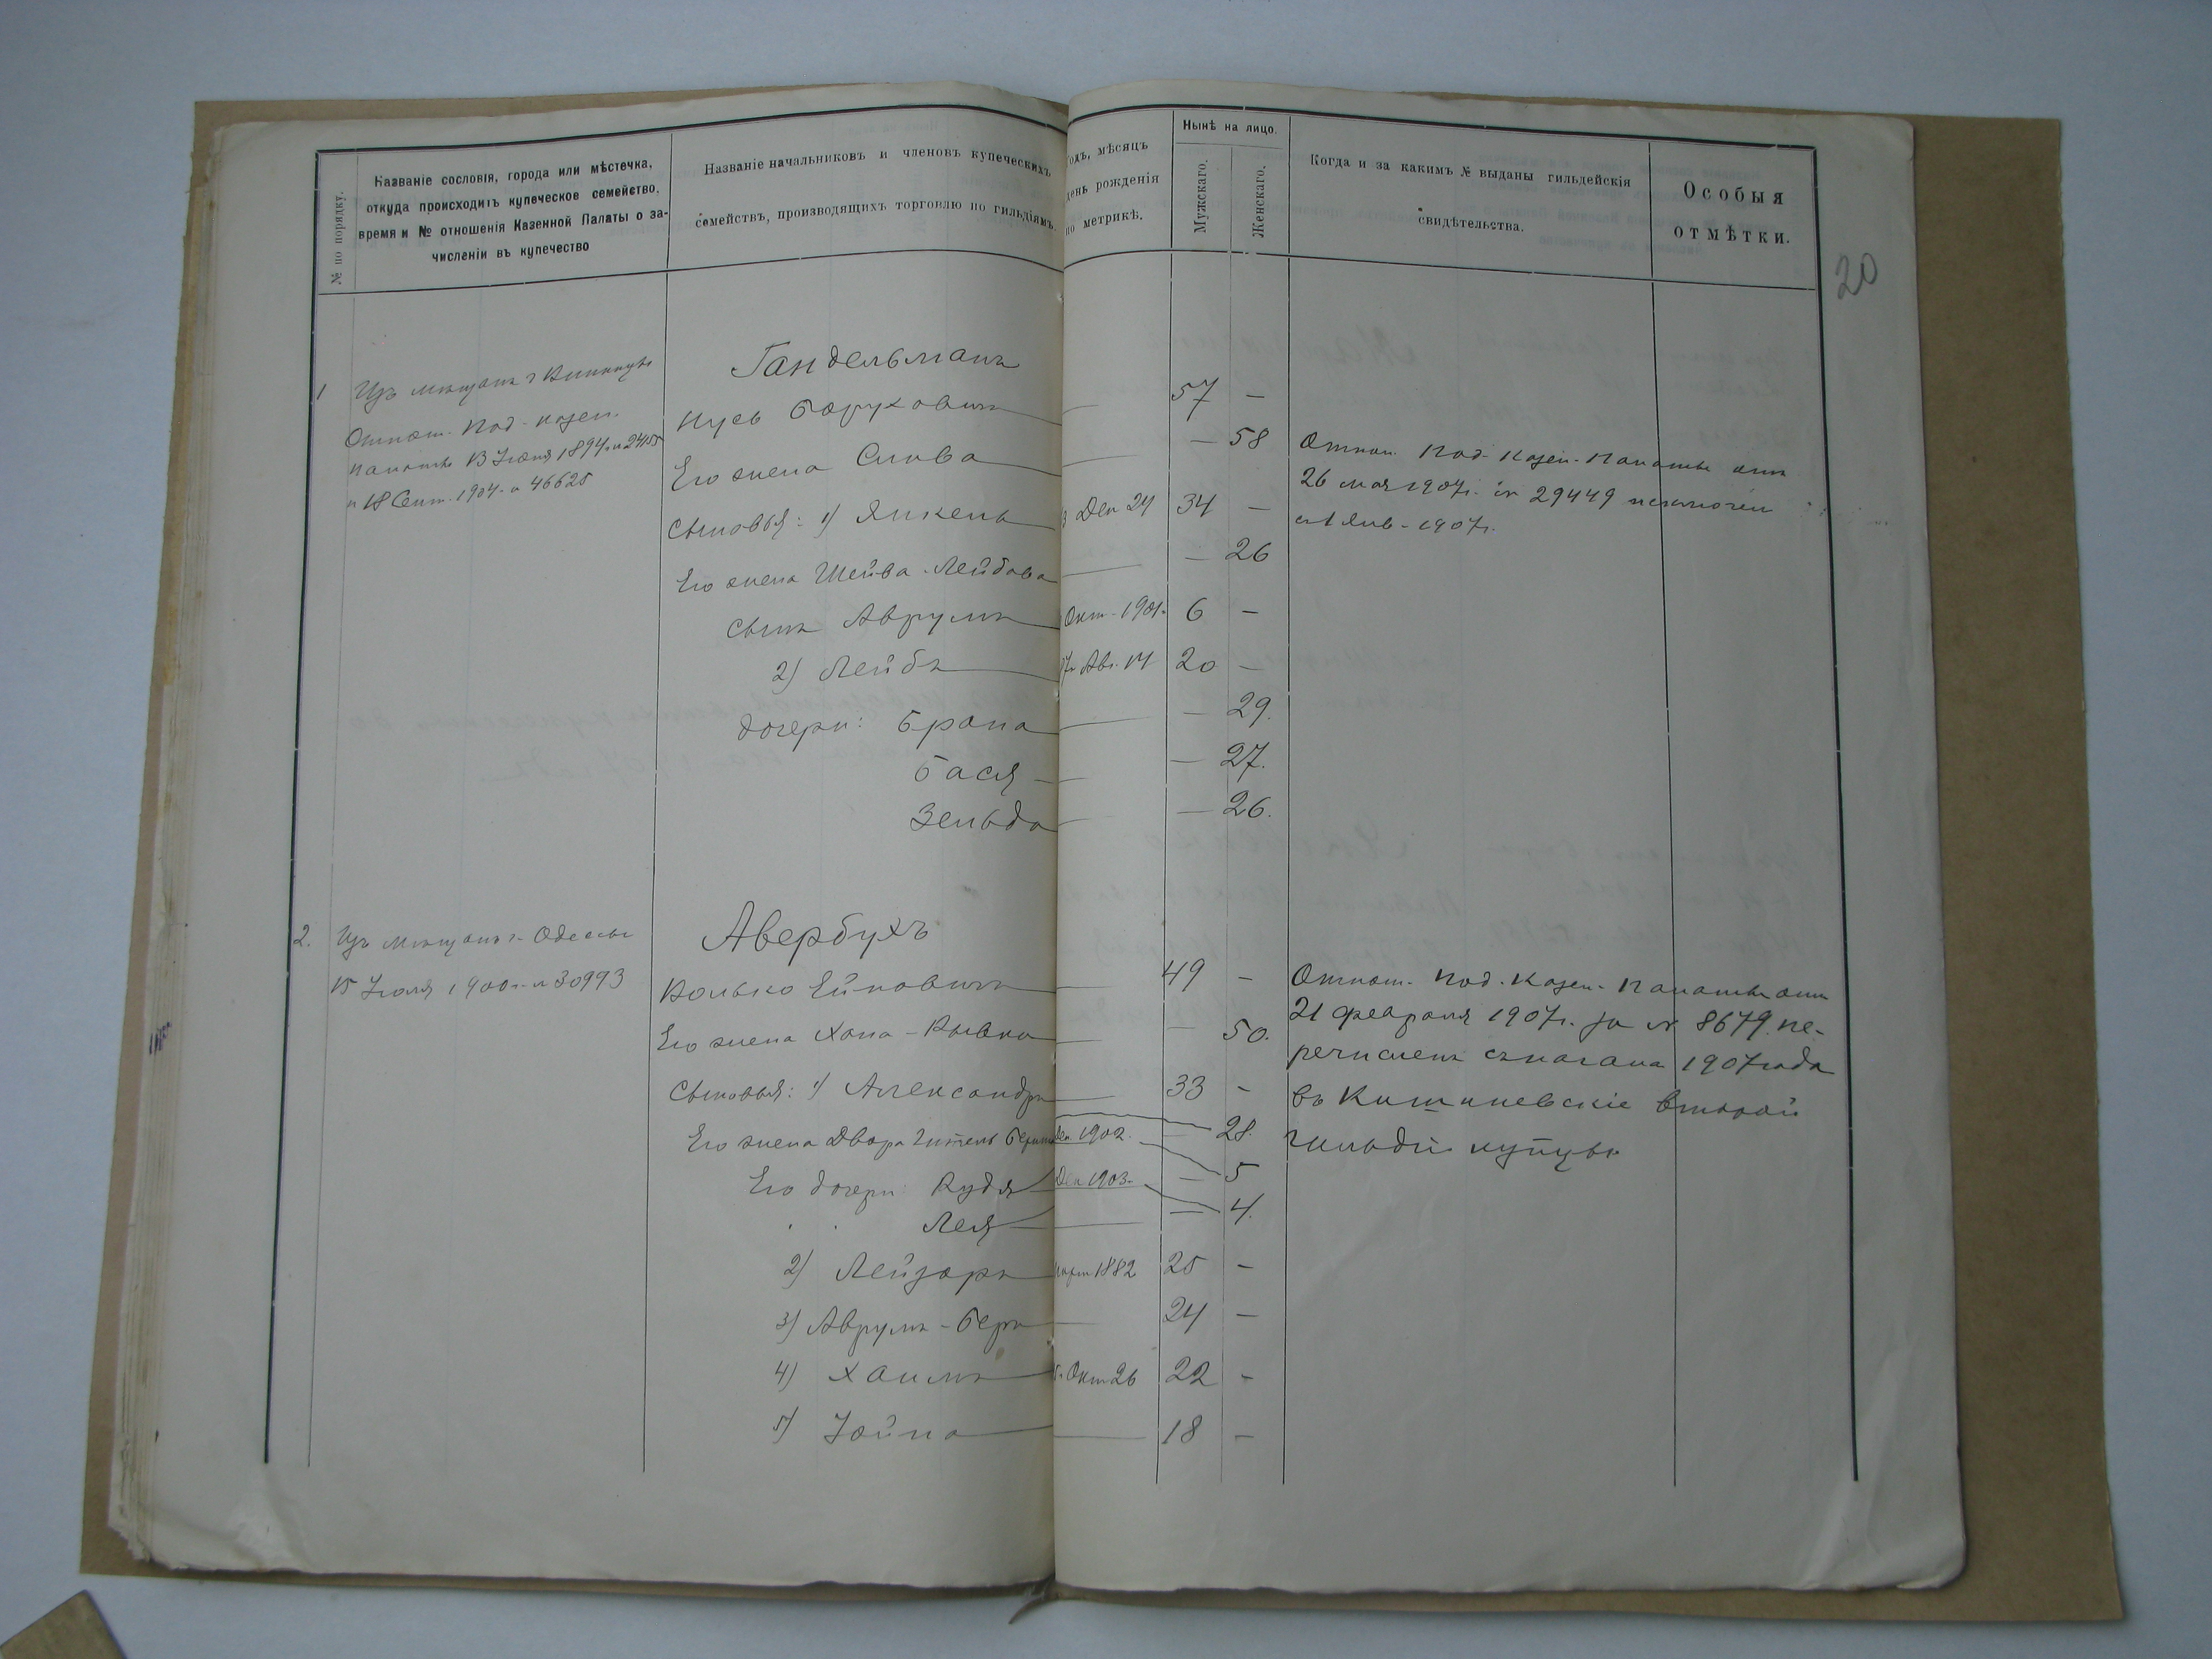 № по порядку.
Названіе сословія, города или мѣстечка,
откуда происходитъ купеческое семейство,
время и № отношенія Казенной Палаты о за-
численіи въ купечество
Названіе начальниковъ и членовъ купеческихъ
семействъ, производящихъ торговлю по гильдіямъ.
одъ, мѣсяцъ
день рожденія
по метрикѣ.
Нынѣ на лицо.
Мужскаго.
Женскаго.
Когда и за какимъ № выданы гильдейскія
свидѣтельства.
Особыя
отмѣтки.
20
1 Изъ мѣщанъ г Винницы
Отнош. Под. Казен.
Палаты 13 Іюня 1894 г. № 24155
и 18 Сент. 1904 г. № 46625
Гандельманъ
Нусь Боруховичъ — 57 —
Его жена Слива — — 58
Сыновья: 1) Янкель Дек 24 34 —
Его жена Шейва Лейбова — — 26
сынъ Аврумъ Окт. 1901 г. 6 —
2) Лейба Авг. 14 20 —
дочери: Брана — — 29.
Бася — — 27.
Зельда — — 26.
Отнош. Под. Казен. Палаты отъ
26 мая 1907 г. № 29449 исключен
съ 1 Янв. 1907 г.
2. Изъ мѣщанъ г. Одессы
15 Іюля 1900 г. № 30993
Авербухъ
Волько Ейновичъ — 49 —
Его жена Хана-Рывка — — 50.
Сыновья: 1) Александръ — 33 —
Его жена Двора Гитель Беркова — 28.
Его дочери: Рудя Дек. 1902. — 5
Лея Дек 1903. — 4.
2) Лейзоръ март 1882 25 —
3) Аврумъ-Беръ — 24 —
4) Хаимъ Окт 26 22 —
5) Іойна — 18 —
Отнош. Под. Казен. Палаты отъ
21 февраля 1907 г. за № 8679 пе-
речисленъ съ начала 1907 года
въ Кишиневскіе второй
гильдіи купцы